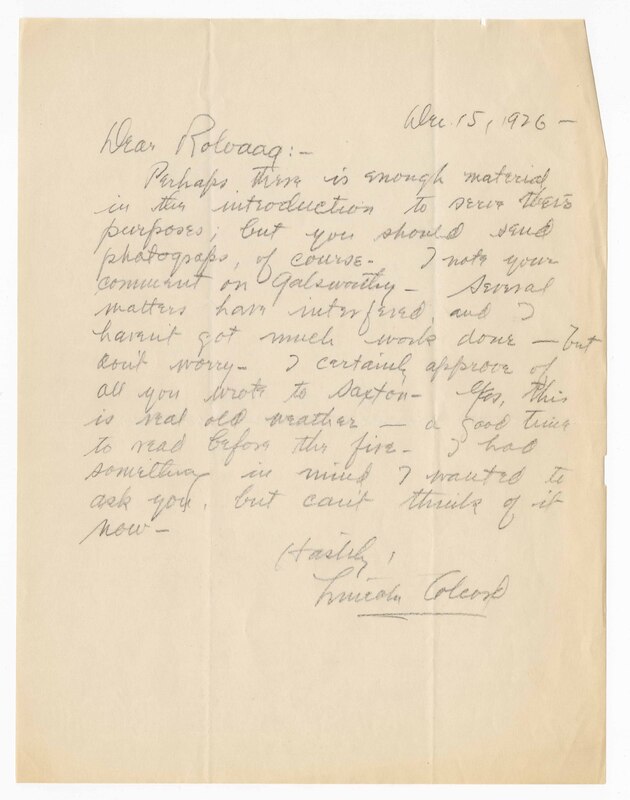 Dec. 15, 1926 —
Dear Rolvaag:—
Perhaps there is enough material
in the introduction to serve their
purposes; but you should send
photograps, of course. I note your
comment on Galsworthy — Several
matters have interfered, and I
haven't got much work done — but
don't worry — I certainly approve of
all you wrote to Saxton — Yes, this
is real old weather — a good time
to read before the fire — I had
something in mind I wanted to
ask you, but can't think of it
now —
Hastily,
Lincoln Colcord